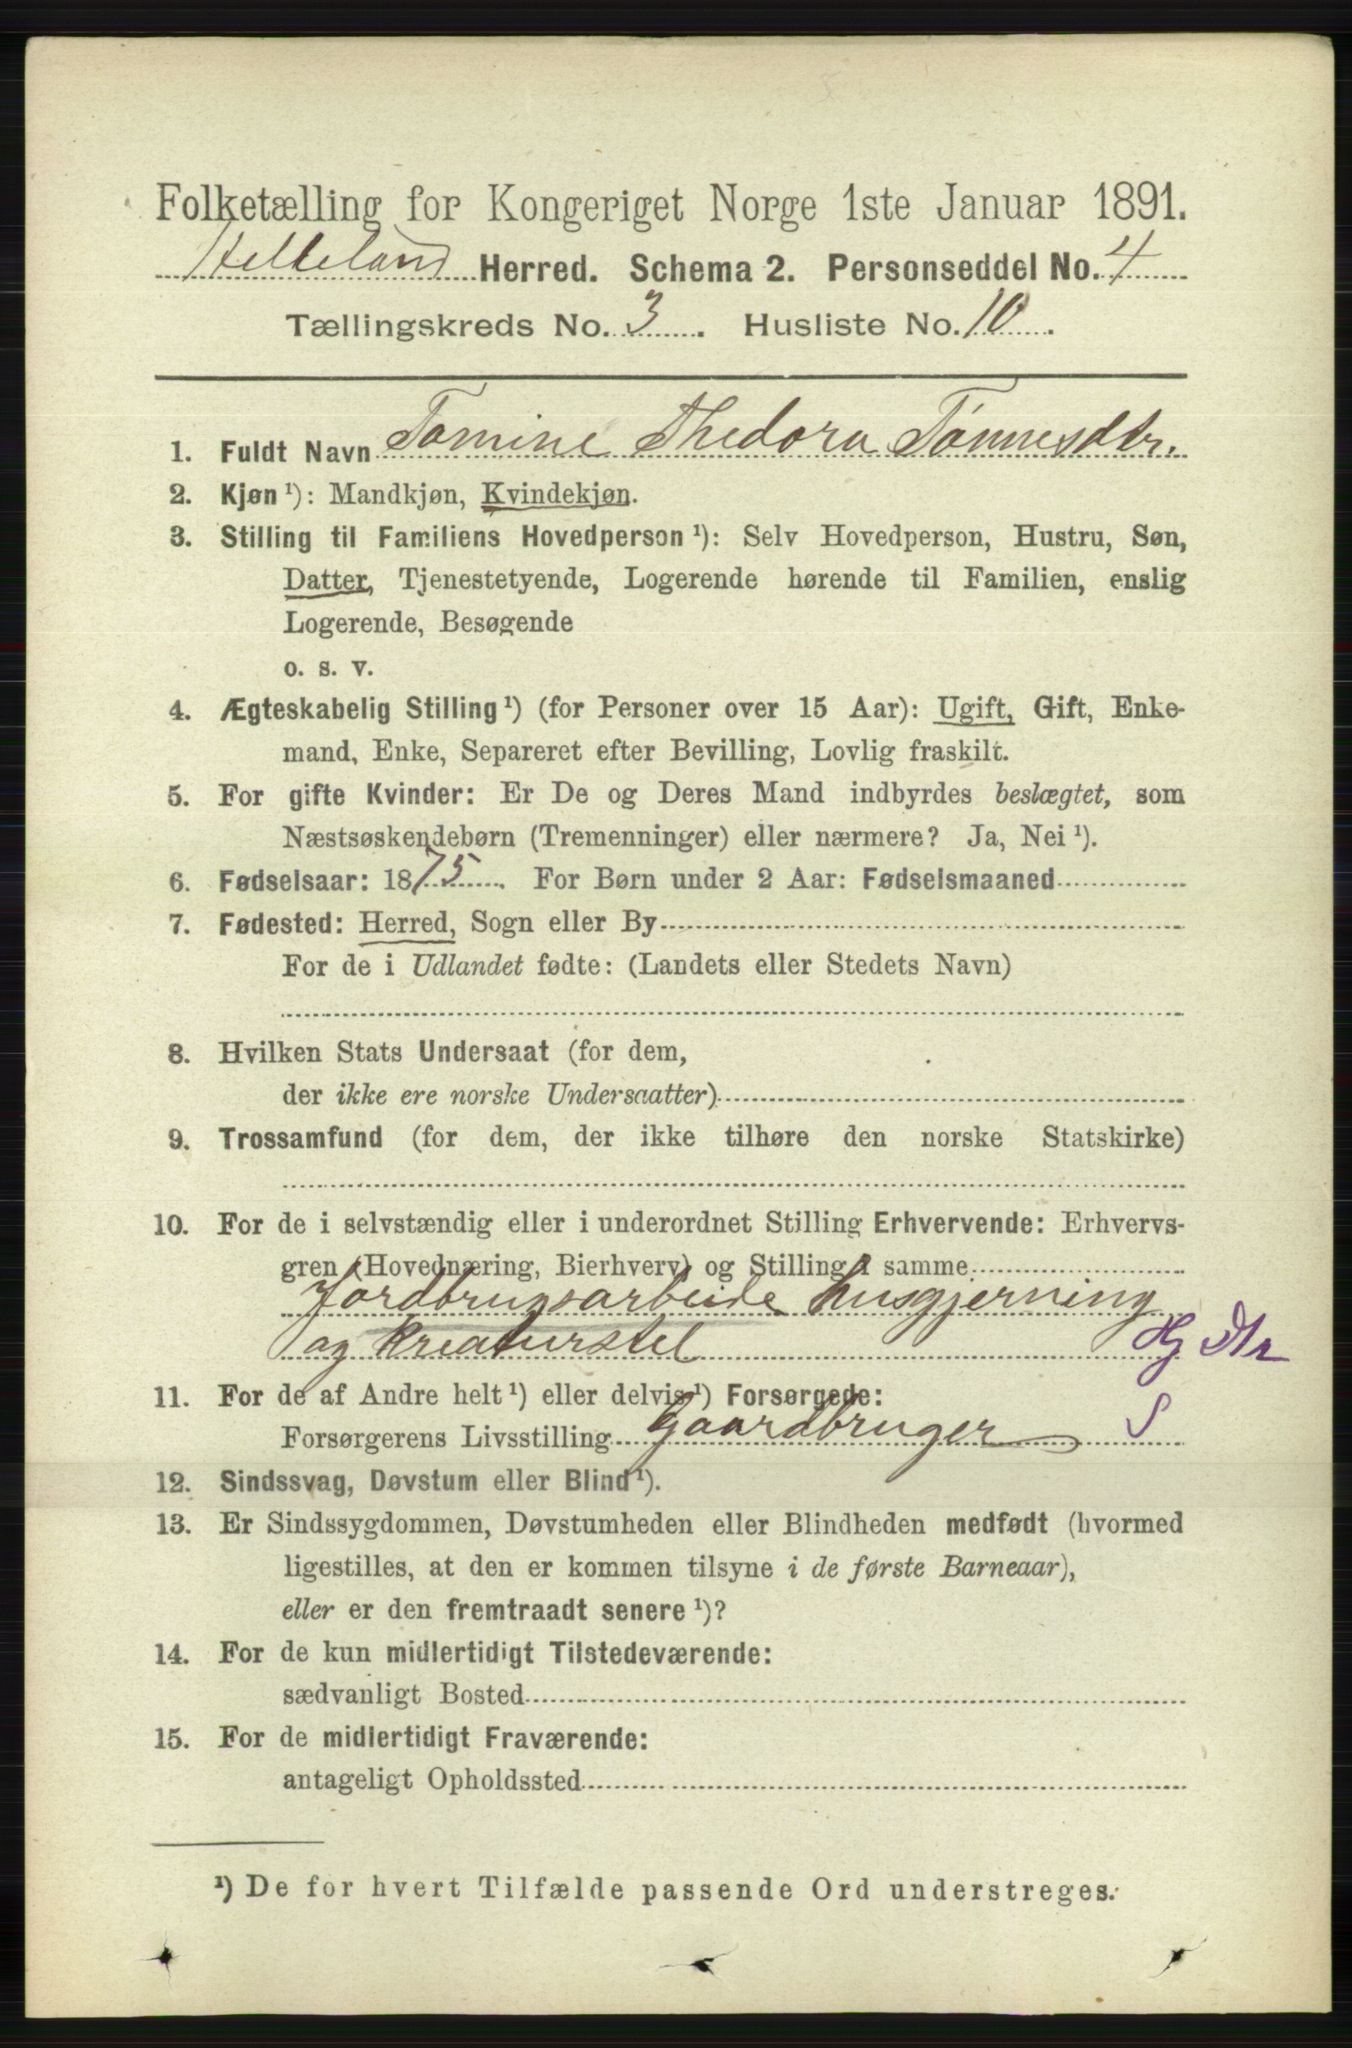 Folketælling for Kongeriget Norge 1ste Januar 1891.
Helleland Herred. Schema 2. Personseddel No. 4
Tællingskreds No. 3. Husliste No. 10.
1. Fuldt Navn Tomine Thedora Tönnesdtr.
2. Kjøn ¹): Mandkjøn, Kvindekjøn.
3. Stilling til Familiens Hovedperson ¹): Selv Hovedperson, Hustru, Søn,
Datter, Tjenestetyende, Logerende hørende til Familien, enslig
Logerende, Besøgende
o. s. v.
4. Ægteskabelig Stilling ¹) (for Personer over 15 Aar): Ugift, Gift, Enke-
mand, Enke, Separeret efter Bevilling, Lovlig fraskilt.
5. For gifte Kvinder: Er De og Deres Mand indbyrdes beslægtet, som
Næstsøskendebørn (Tremenninger) eller nærmere? Ja, Nei ¹).
6. Fødselsaar: 1875. For Børn under 2 Aar: Fødselsmaaned
7. Fødested: Herred, Sogn eller By
For de i Udlandet fødte: (Landets eller Stedets Navn)
8. Hvilken Stats Undersaat (for dem,
der ikke ere norske Undersaatter)
9. Trossamfund (for dem, der ikke tilhøre den norske Statskirke)
10. For de i selvstændig eller i underordnet Stilling Erhvervende: Erhvervs-
gren (Hovednæring, Bierhverv) og Stilling i samme
Jordbrugsarbeide husgjerning
og kreaturstel Hj Dtr
11. For de af Andre helt ¹) eller delvis ¹) Forsørgede:
Forsørgerens Livsstilling Gaardbruger S
12. Sindssvag, Døvstum eller Blind ¹).
13. Er Sindssygdommen, Døvstumheden eller Blindheden medfødt (hvormed
ligestilles, at den er kommen tilsyne i de første Barneaar),
eller er den fremtraadt senere ¹)?
14. For de kun midlertidigt Tilstedeværende:
sædvanligt Bosted
15. For de midlertidigt Fraværende:
antageligt Opholdssted
¹) De for hvert Tilfælde passende Ord understreges.